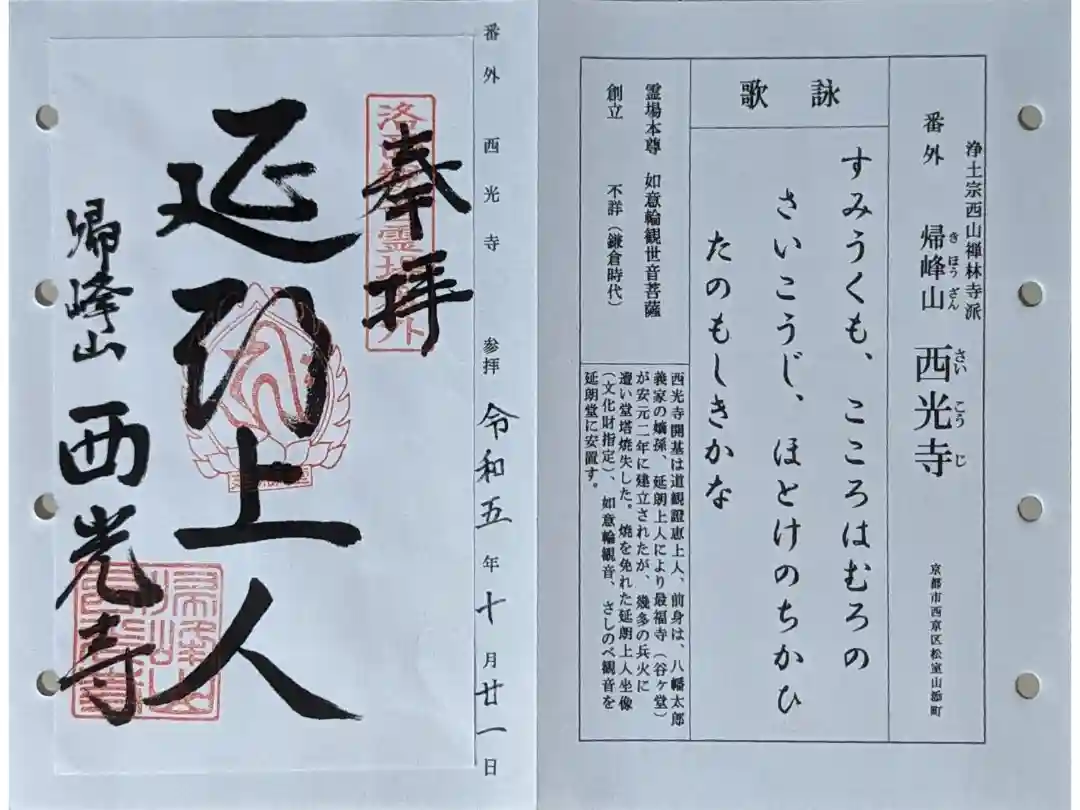 浄土宗西山禅林寺派
番外 帰峰山 西光寺
きほうざん さいこうじ
京都市西京区松室山添町
詠歌
すみうくも、こころはむろの
さいこうじ、ほとけのちかひ
たのもしきかな
霊場本尊 如意輪観世音菩薩
創立 不詳(鎌倉時代)
西光寺開基は道観證恵上人、前身は、八幡太郎
義家の嫡孫、延朗上人により最福寺(谷ヶ堂)
が安元二年に建立されたが、幾多の兵火に
遭い堂塔焼失した。焼を免れた延朗上人坐像
(文化財指定)、如意輪観音、さしのべ観音を
延朗堂に安置す。
番外 西光寺 参拝 令和五年十月廿一日
奉拝
延朗上人
帰峰山 西光寺